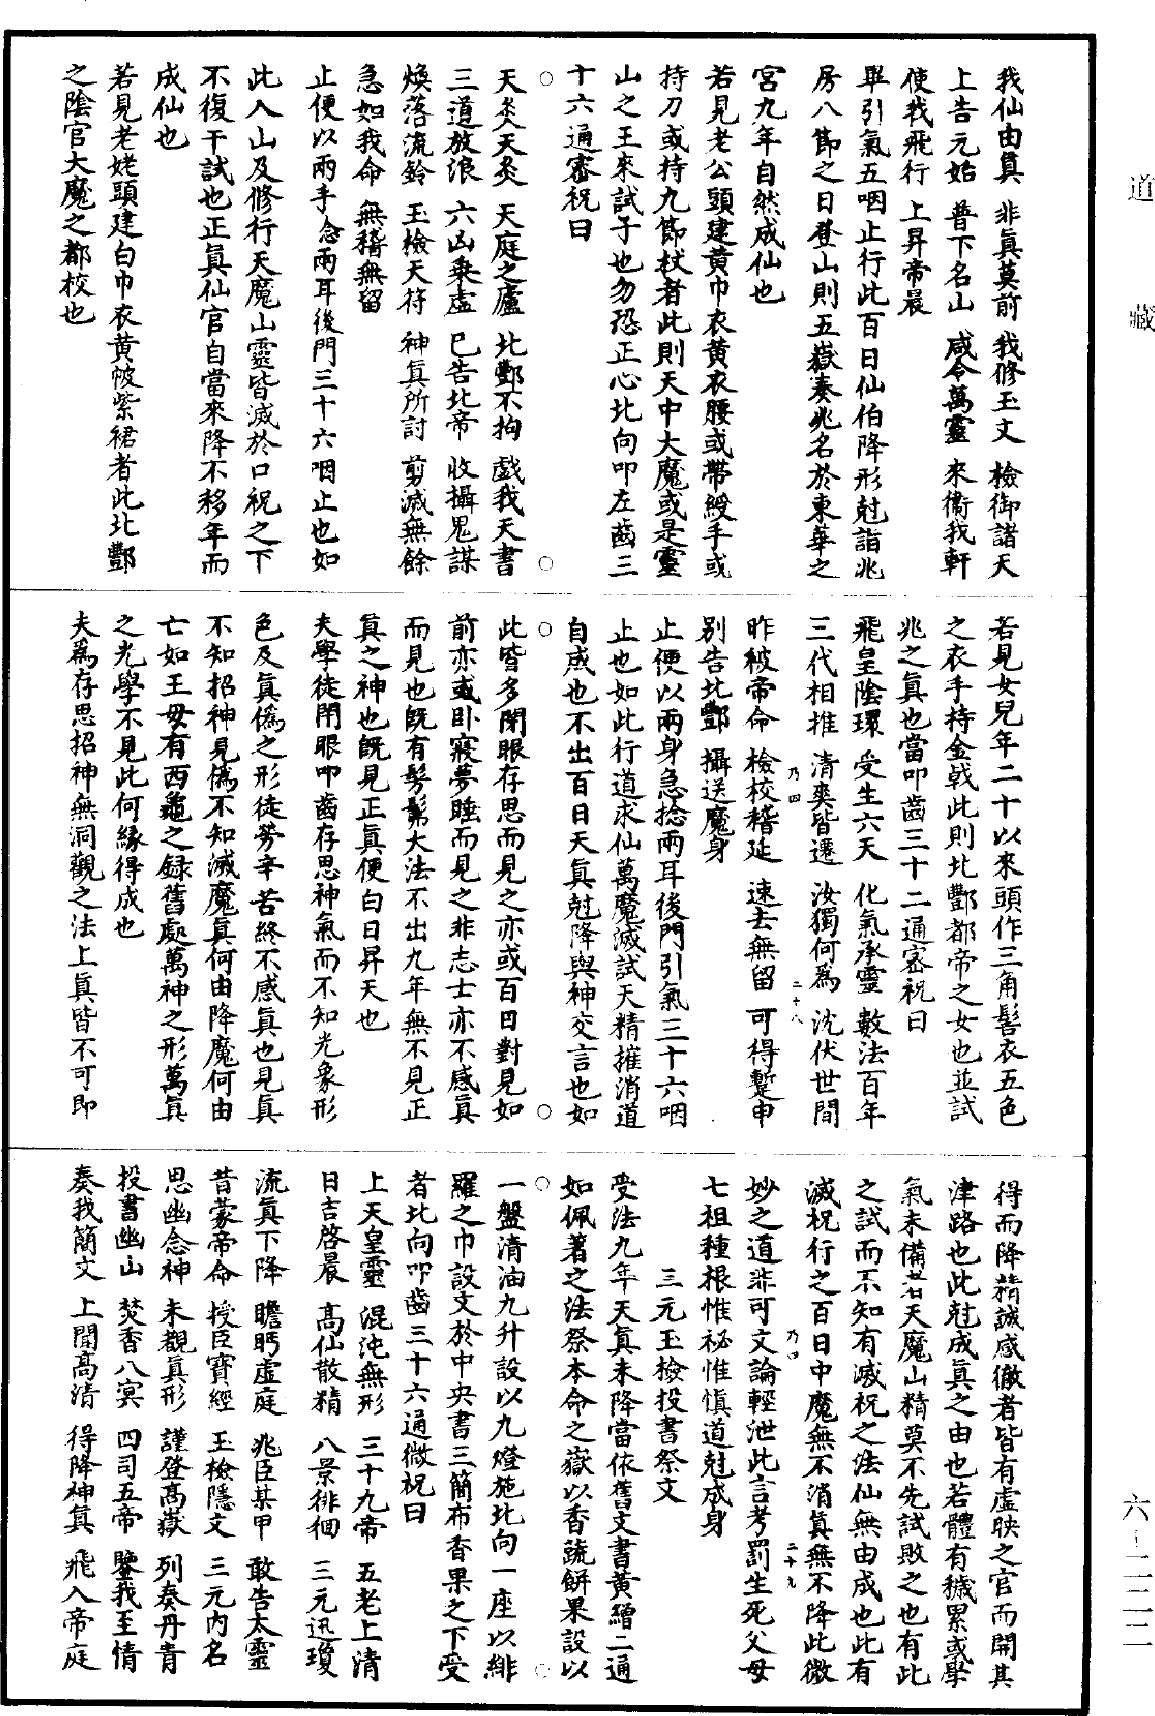 道藏
我仙由真 非真莫前 我修玉文 檢御諸天
上告元始 普下名山 咸令萬靈 來衞我軒
使我飛行 上昇帝晨
畢引氣五咽止行此百日仙伯降形尅詣兆
房八節之日登山則五嶽奏兆名於東華之
宮九年自然成仙也
若見老公頭建黃巾衣黃衣腰或帶綬手或
持刀或持九節杖者此則天中大魔或是靈
山之王來試子也勿恐正心北向叩左齒三
十六通審祝曰
天炁天炁 天庭之廬 北酆不拘 戲我天書
三道放浪 六凶乗虛 已告北帝 收攝鬼謀
煥落流鈴 玉檢天符 神真所討 剪滅無餘
急如我命 無稽無留
止便以兩手急兩耳後門三十六咽止也如
此入山及修行天魔山靈皆滅於口祝之下
不復干試也正真仙官自當來降不移年而
成仙也
若見老姥頭建白巾衣黃帔紫裙者此北酆
之陰官大魔之都校也
若見女兒年二十以來頭作三角髻衣五色
之衣手持金戟此則北酆都帝之女也並試
兆之真也當叩齒三十二通密祝曰
飛皇陰環 受生六天 化氣承靈 數法百年
三代相推 清爽皆還 汝獨何為 沈伏世間
乃四 二十八
昨被帝命 檢校稽延 速去無留 可得蹔申
別告北酆 攝送魔身
止便以兩身急捻兩耳後門引氣三十六咽
止也如此行道求仙萬魔滅試天精摧消道
自成也不出百日天真尅降與神交言也如
此皆多閉眼存思而見之亦或百日對見如
前亦或卧寢夢睡而見之非志士亦不感真
而見也旣有髣髴大法不出九年無不見正
真之神也旣見正真便白日昇天也
夫學徒閉眼叩齒存思神氣而不知光象形
色及真僞之形徒勞辛苦終不感真也見真
不知招神見僞不知滅魔真何由降魔何由
亡如王母有西龜之録舊處萬神之形萬真
之光學不見此何緣得成也
夫為存思招神無洞觀之法上真皆不可即
得而降精誠感徹者皆有虛映之官而開其
津路也此尅成真之由也若體有穢累或學
氣未備者天魔山精莫不先試敗之也有此
之試而不知有滅祝之法仙無由成也此有
滅祝行之百日中魔無不消真無不降此微
乃四 二十九
妙之道非可文論輕泄此言考罰生死父母
七祖種根惟祕惟慎道尅成身
三元玉檢投書祭文
受法九年天真未降當依舊文書黃繒二通
如佩著之法祭本命之嶽以香蔬餅果設以
一盤清油九升設以九燈施北向一座以緋
羅之巾設文於中央書三簡布香果之下受
者北向叩齒三十六通微祝曰
上天皇靈 混沌無形 三十九帝 五老上清
日吉啓晨 高仙散精 八景徘徊 三元迅瓊
流真下降 瞻眄虛庭 兆臣某甲 敢告太靈
昔蒙帝命 授臣寶經 玉檢隱文 三元内名
思幽念神 未覩真形 謹登高嶽 列奏丹青
投書幽山 焚香八冥 四司五帝 鑒我至情
奏我簡文 上聞高清 得降神真 飛入帝庭
六—二二二